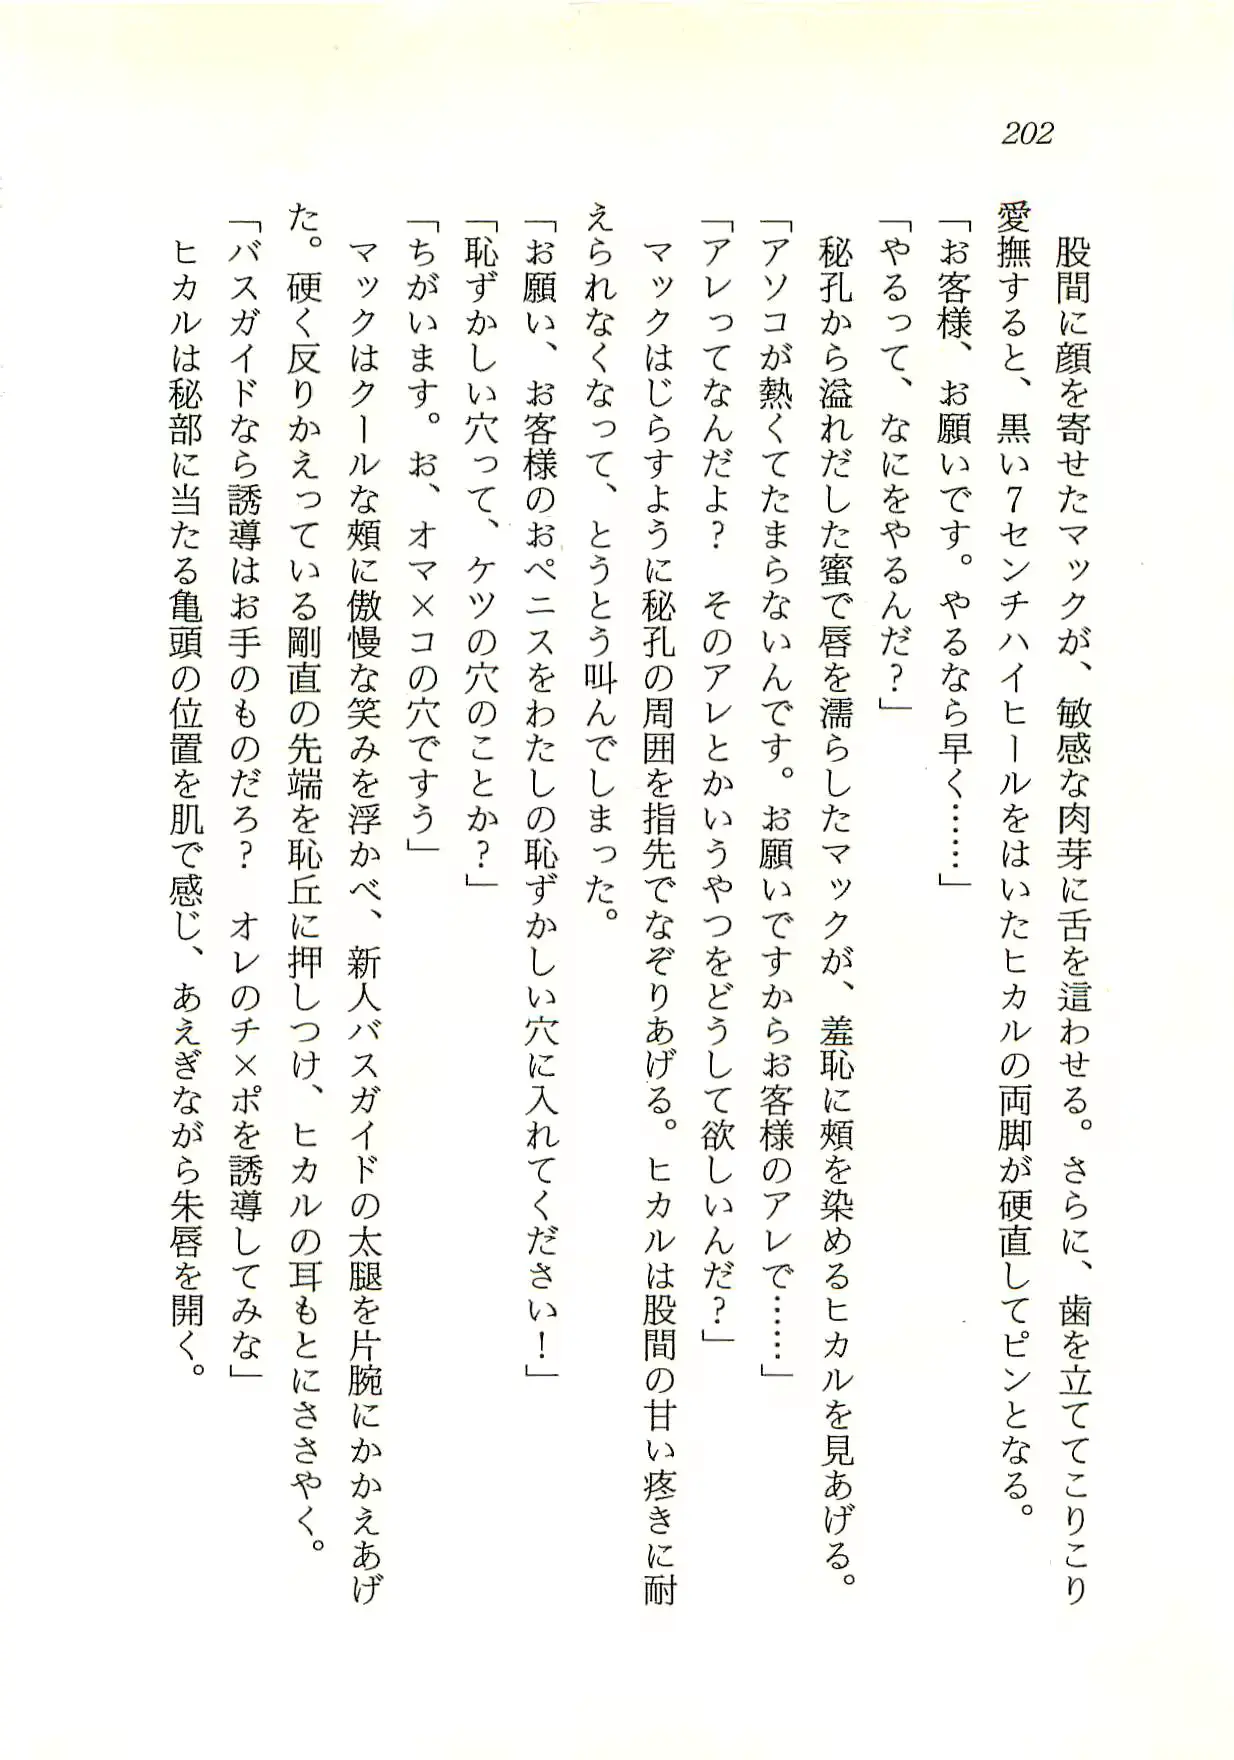 202
　股間に顔を寄せたマックが、敏感な肉芽に舌を這わせる。さらに、歯を立ててこりこり
愛撫すると、黒い７センチハイヒールをはいたヒカルの両脚が硬直してピンとなる。
「お客様、お願いです。やるなら早く……」
「やるって、なにをやるんだ？」
　秘孔から溢れだした蜜で唇を濡らしたマックが、羞恥に頰を染めるヒカルを見あげる。
「アソコが熱くてたまらないんです。お願いですからお客様のアレで……」
「アレってなんだよ？　そのアレとかいうやつをどうして欲しいんだ？」
　マックはじらすように秘孔の周囲を指先でなぞりあげる。ヒカルは股間の甘い疼きに耐
えられなくなって、とうとう叫んでしまった。
「お願い、お客様のおペニスをわたしの恥ずかしい穴に入れてください！」
「恥ずかしい穴って、ケツの穴のことか？」
「ちがいます。お、オマ×コの穴ですう」
　マックはクールな頰に傲慢な笑みを浮かべ、新人バスガイドの太腿を片腕にかかえあげ
た。硬く反りかえっている剛直の先端を恥丘に押しつけ、ヒカルの耳もとにささやく。
「バスガイドなら誘導はお手のものだろ？　オレのチ×ポを誘導してみな」
　ヒカルは秘部に当たる亀頭の位置を肌で感じ、あえぎながら朱唇を開く。